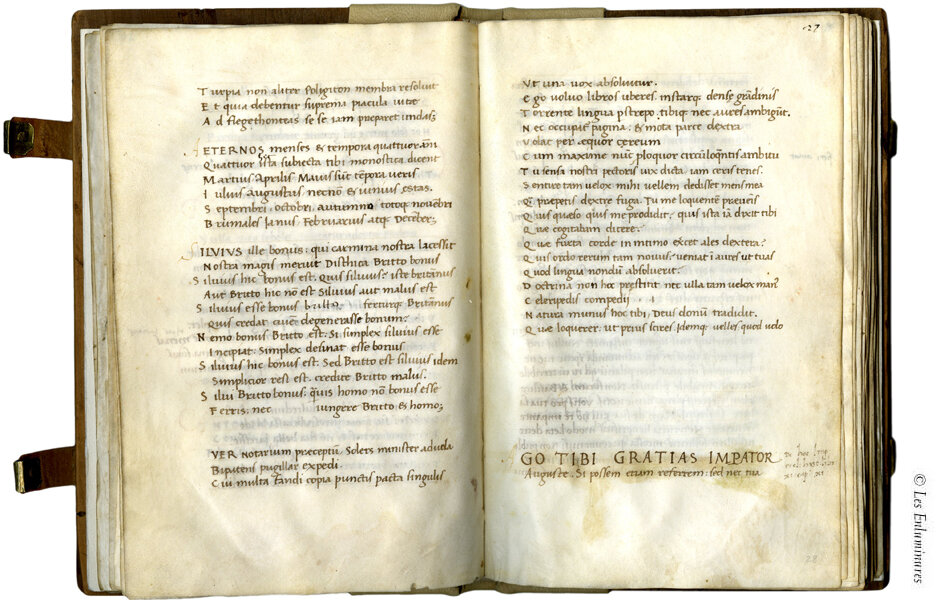 Turpia non aliter Poligiton membra resoluit
Et quia debentur suprema piacula uitae
Ad flegethontas se se iam preparet undas;
AETERNOS menses & tempora quattuor
Quattuor ista subiecta tibi monostica dicent
Martius Aprilis Maius sūt tēpora ueris
Iulius augustus necnō & iunius estas.
Septembri, octobri, autumno totoq; nouēbri
Brumales Ianus Februarius atq; Decēber;
SILVIVS ille bonus: qui carmina nostra lacessit
Nostra magis meruit Disthica Britto bonus
Siluius hic bonus est. Quis siluius? iste britānus
Aut Britto hic nō est Siluius aut malus est
Siluius esse bonus britto ferturq; Britānus
Quis credat ciuē degenerasse bonum?
Nemo bonus Britto est. Si simplex siluius esse
Incipiat. Simplex desinat esse bonus
Siluius hic bonus est. Sed Britto est siluius idem
Simplicior res est. credite Britto malus.
Silui Britto bonus: quis homo nō bonus esse
Ferris: nec iungere Britto & homo;
VER Notarium praeceptū. Solers minister aduola
Bipatens pugillar expedi.
Cui multa fandi copia punctis pacta singulis
27
Vt una uox absoluitur.
Ego uoluo libros uberes. instarq; dense grādinis
Torrente lingua pstrepo. tibiq; nec aures ambigūt.
Nec occupat pagina; & mota parce dextra
Volat per aequor cereum
Cum maxime nūc ploquor circūloquētis ambitu
Tu sensa nostri pectoris uix dicta iam ceris tenes.
Sentire tam uelox mihi uellem dedisset mens mea
Q̄ prepetis dextre fuga. Tu me loquentē preuenis
Quis quaeso quis me prodidit: quis ista iā dixit tibi
Quae cogitabam dicere?
Quae furta corde in intimo excet ales dextera?
Quis ordo rerum tam nouus: ueniat ī aures ut tuas
Quod lingua nondū absoluerit?
Doctrina non hoc prestitit nec ulla tam uelox man
Celeripedis compedij
Natura munus hoc tibi; Deus donū tradidit.
Quae loquerer. ut prius scires. Idemq; uelles quod uolo
AGO TIBI GRATIAS IMPATOR
Auguste. Si possem etiam referrem: sed nec tua
28
© Les Enluminures